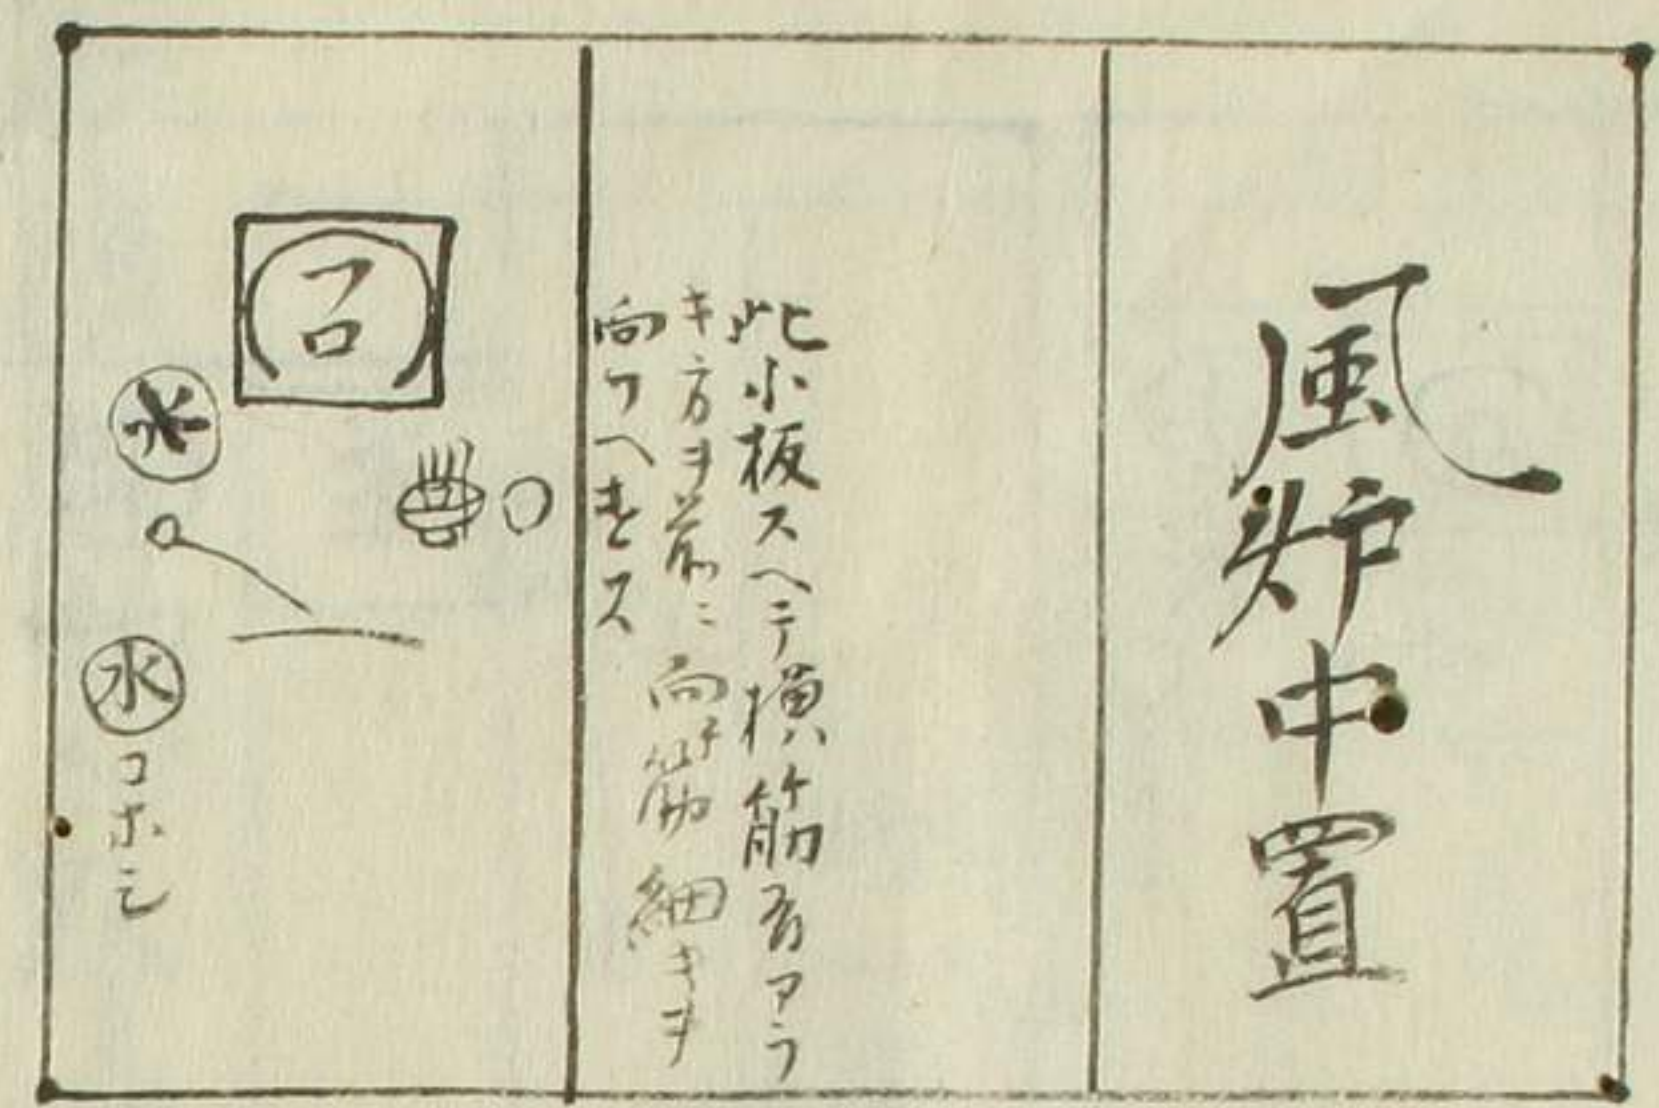 風炉中置
此小板スヘテ横筋有アラ
キ方ヲ前ニ向筋細キヲ
向フヘ
フロ
水
水
コホシ